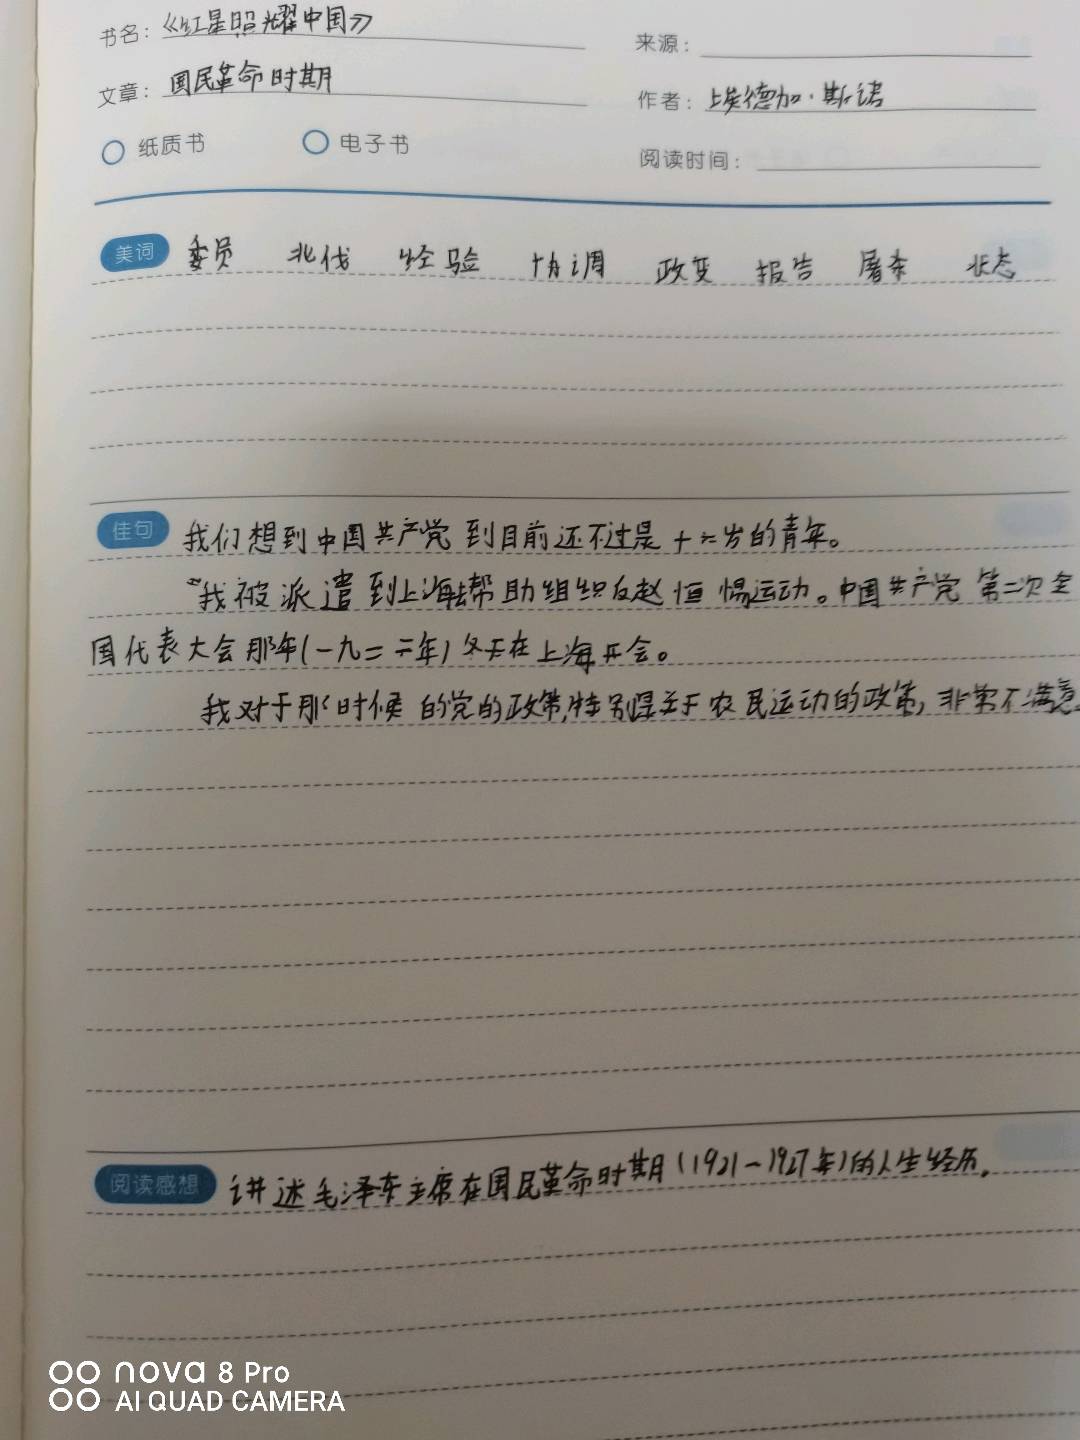 书名：《红星照耀中国》
来源：
文章：国民革命时期
作者：埃德加·斯诺
纸质书 电子书
阅读时间：
美词 委员 北伐 经验 协调 政变 报告 屠杀 状态
佳句 我们想到中国共产党到目前还不过是十六岁的青年。
“我被派遣到上海去帮助组织反赵恒惕运动。中国共产党第二次全
国代表大会那年(一九二二年)冬天在上海开会。
我对于那时候的党的政策,特别是关于农民运动的政策,非常不满意。
阅读感想 讲述毛泽东主席在国民革命时期(1921-1927年)的人生经历。
nova 8 Pro
AI QUAD CAMERA